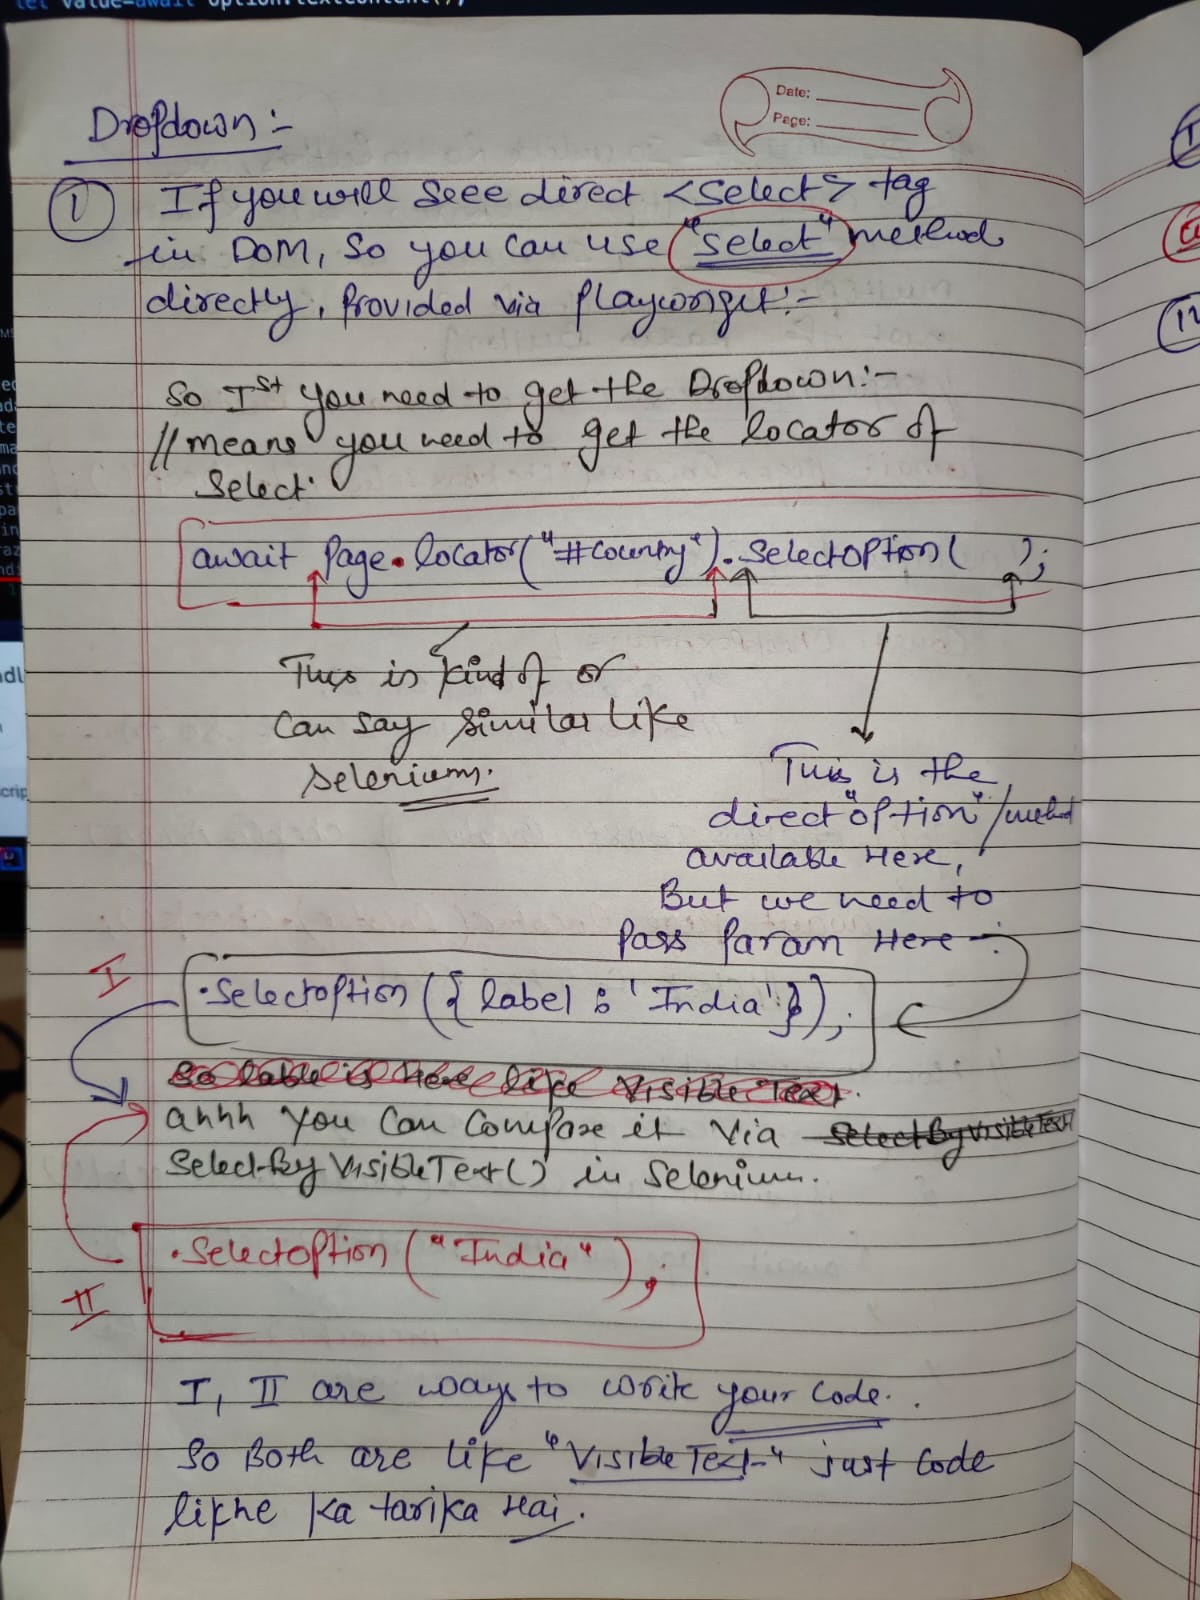 let value=await option.textContent();
Date:
Page:
Dropdown :-
① If you will seee direct <select> tag
in DOM, So you can use "select" method
directly, Provided via Playwright:-
So Ist you need to get the Dropdown:-
// means you need to get the locator of
Select.
await Page.locator("#Country").SelectOption( );
This is kind of or
Can say similar like
Selenium.
This is the
direct "option"/method
available Here,
But we need to
Pass Param Here -
I
.SelectOption ({ label : 'India' });
So lable is Here like Visible Text.
ahhh You Can Compare it via SelectByVisibleText
Select-By VisibleText() in Selenium.
.SelectOption ("India");
II
I, II are ways to write your Code.
So Both are like "Visible Text" just Code
likhe ka tarika Hai.